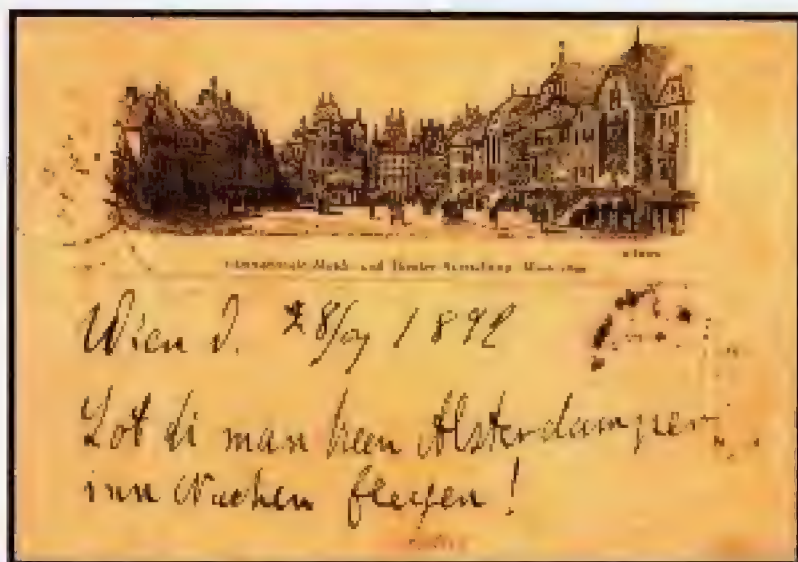 Internationale Musik- und Theater-Ausstellung Wien 1892
Wien d. 28/09 1892
Lot di man keen Alsterdamper
inn Nachen fleegen!